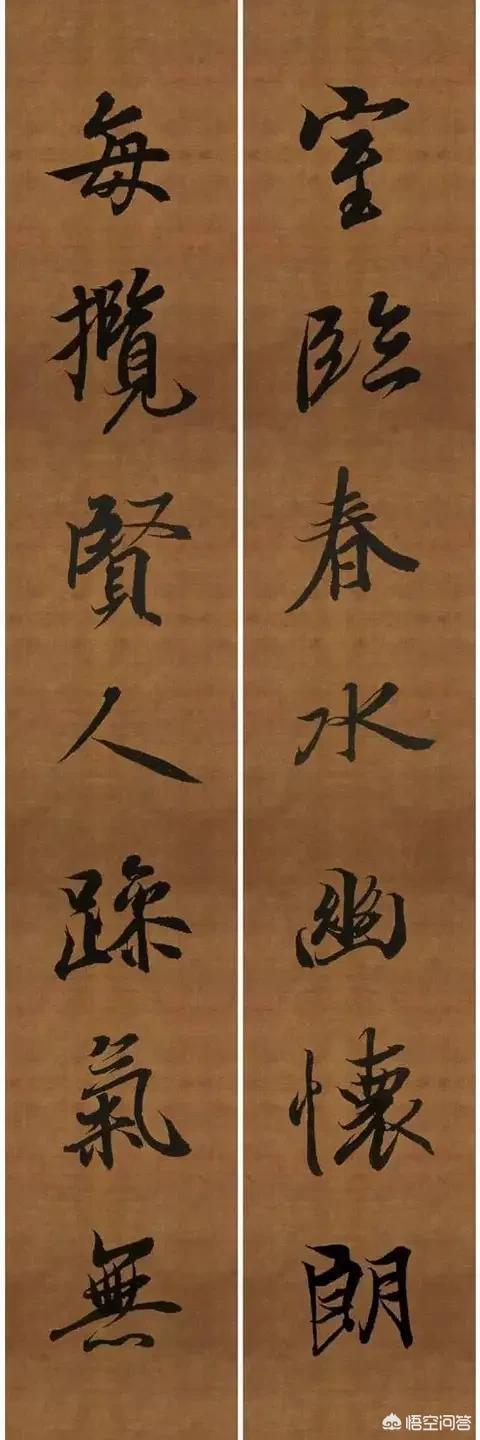 室臨春水幽懷朗
每攬賢人躁氣無
悟空问答